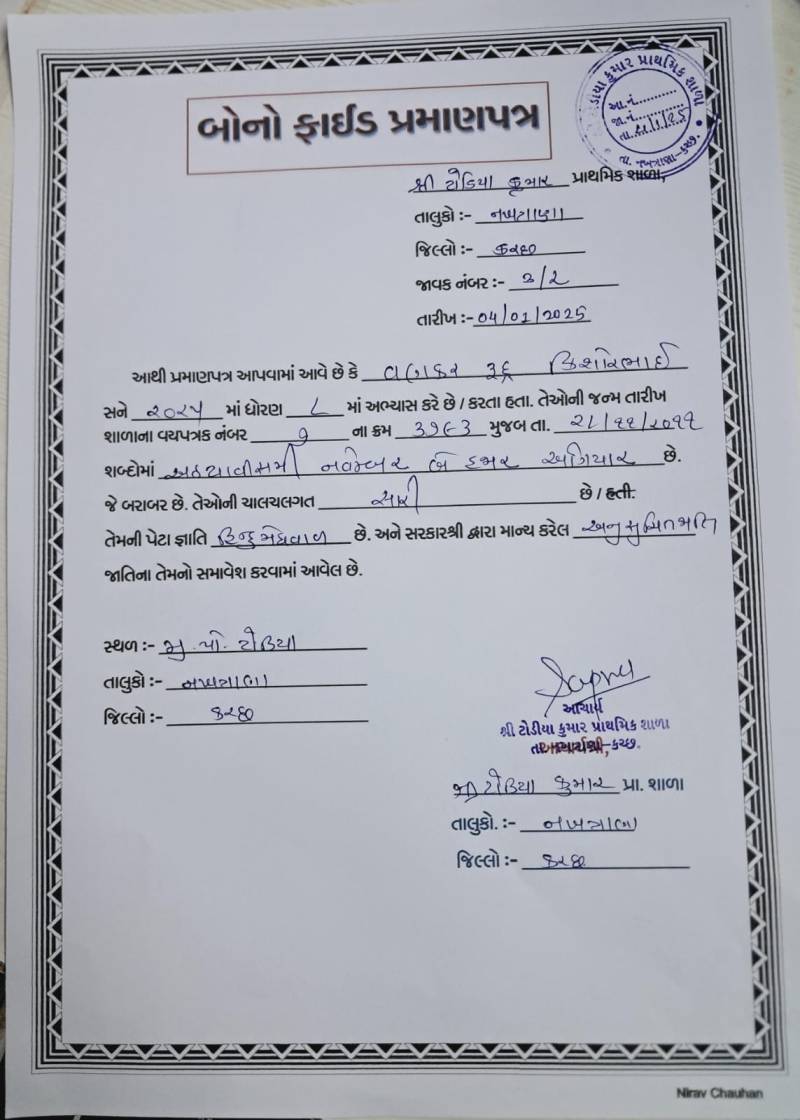 બોનો ફાઈડ પ્રમાણપત્ર
ટોડીયા કુમાર પ્રાથમિક શાળા
આ.નં...........
જા.નં...........
તા.
તા. નખત્રાણા-કચ્છ.
શ્રી ટોડિયા કુમાર પ્રાથમિક શાળા,
તાલુકો :- નખત્રાણા
જિલ્લો :- કચ્છ
જાવક નંબર :- ૩/૨
તારીખ :- 04/01/2025
આથી પ્રમાણપત્ર આપવામાં આવે છે કે વણકર રૂદ્ર કિશોરભાઈ
સને ૨૦૨૫ માં ધોરણ ૮ માં અભ્યાસ કરે છે / કરતા હતા. તેઓની જન્મ તારીખ
શાળાના વયપત્રક નંબર ૭ ના ક્રમ ૩૧૯૩ મુજબ તા. ૨૮/૧૧/૨૦૧૧
શબ્દોમાં અઠયાવીસમી નવેમ્બર બે હજાર અગિયાર છે.
જે બરાબર છે. તેઓની ચાલચલગત સારી છે / હતી.
તેમની પેટા જ્ઞાતિ હિન્દુ મેઘવાળ છે. અને સરકારશ્રી દ્વારા માન્ય કરેલ અનુસુચિતજાતિ
જાતિના તેમનો સમાવેશ કરવામાં આવેલ છે.
સ્થળ :- મુ.પો. ટોડિયા
તાલુકો :- નખત્રાણા
જિલ્લો :- કચ્છ
આચાર્ય
શ્રી ટોડીયા કુમાર પ્રાથમિક શાળા
આચાર્યશ્રી,
શ્રી ટોડિયા કુમાર પ્રા. શાળા
તાલુકો. :- નખત્રાણા
જિલ્લો :- કચ્છ
Nirav Chauhan